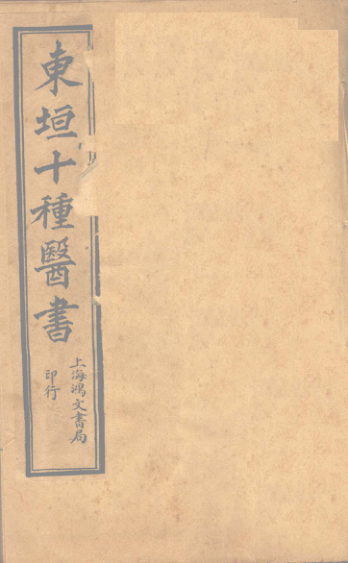 東垣十種醫書
上海鴻文書局
印行